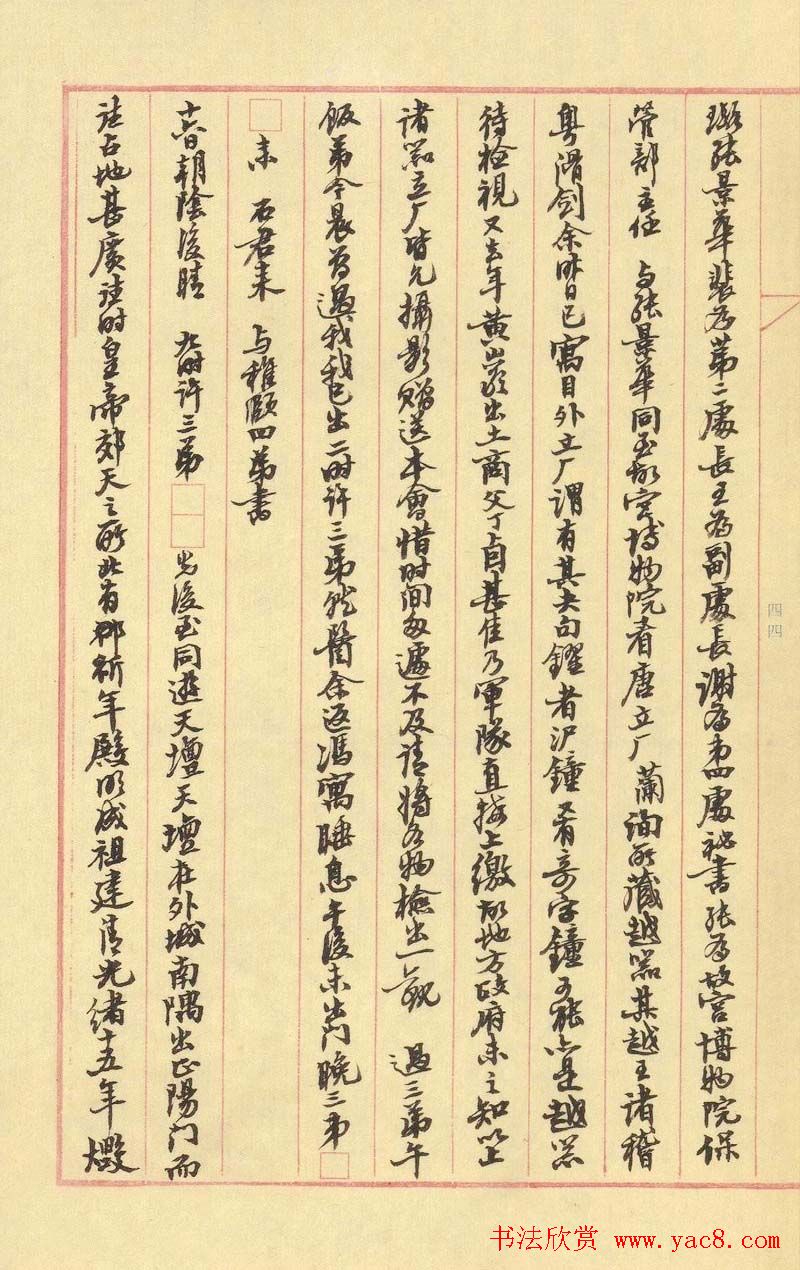 璵張景華裴為第二處長王為副處長謝為第四處祕書張為故宮博物院保
管部主任 与張景華同至故宮博物院看唐立厂蘭詢所藏越器其越王諸稽
粵滑劍余昨日已寓目外立厂謂有其夫句鑃者沪鐘又有奇字鐘可能亦是越器
待檢視又去年黃出土商父丁卣甚佳乃軍隊直接上繳故地方政府未之知以上
諸器立厂皆允攝影贈送本會惜時间匆遽不及請將各物檢出一觀 過三弟午
飯弟今晨曾過我我已出二時許三弟就醫余返馮寓睡息午後未出門晚三弟□
□未 石君来 与稚頤四弟書
十六日朝陰後晴 九时许三弟□□先後至同遊天壇天壇在外城南隅出正陽门而
往占地甚廣往时皇帝郊天之所此有祈年殿明成祖建清光緒十五年燬
四四
书法欣赏 www.yac8.com